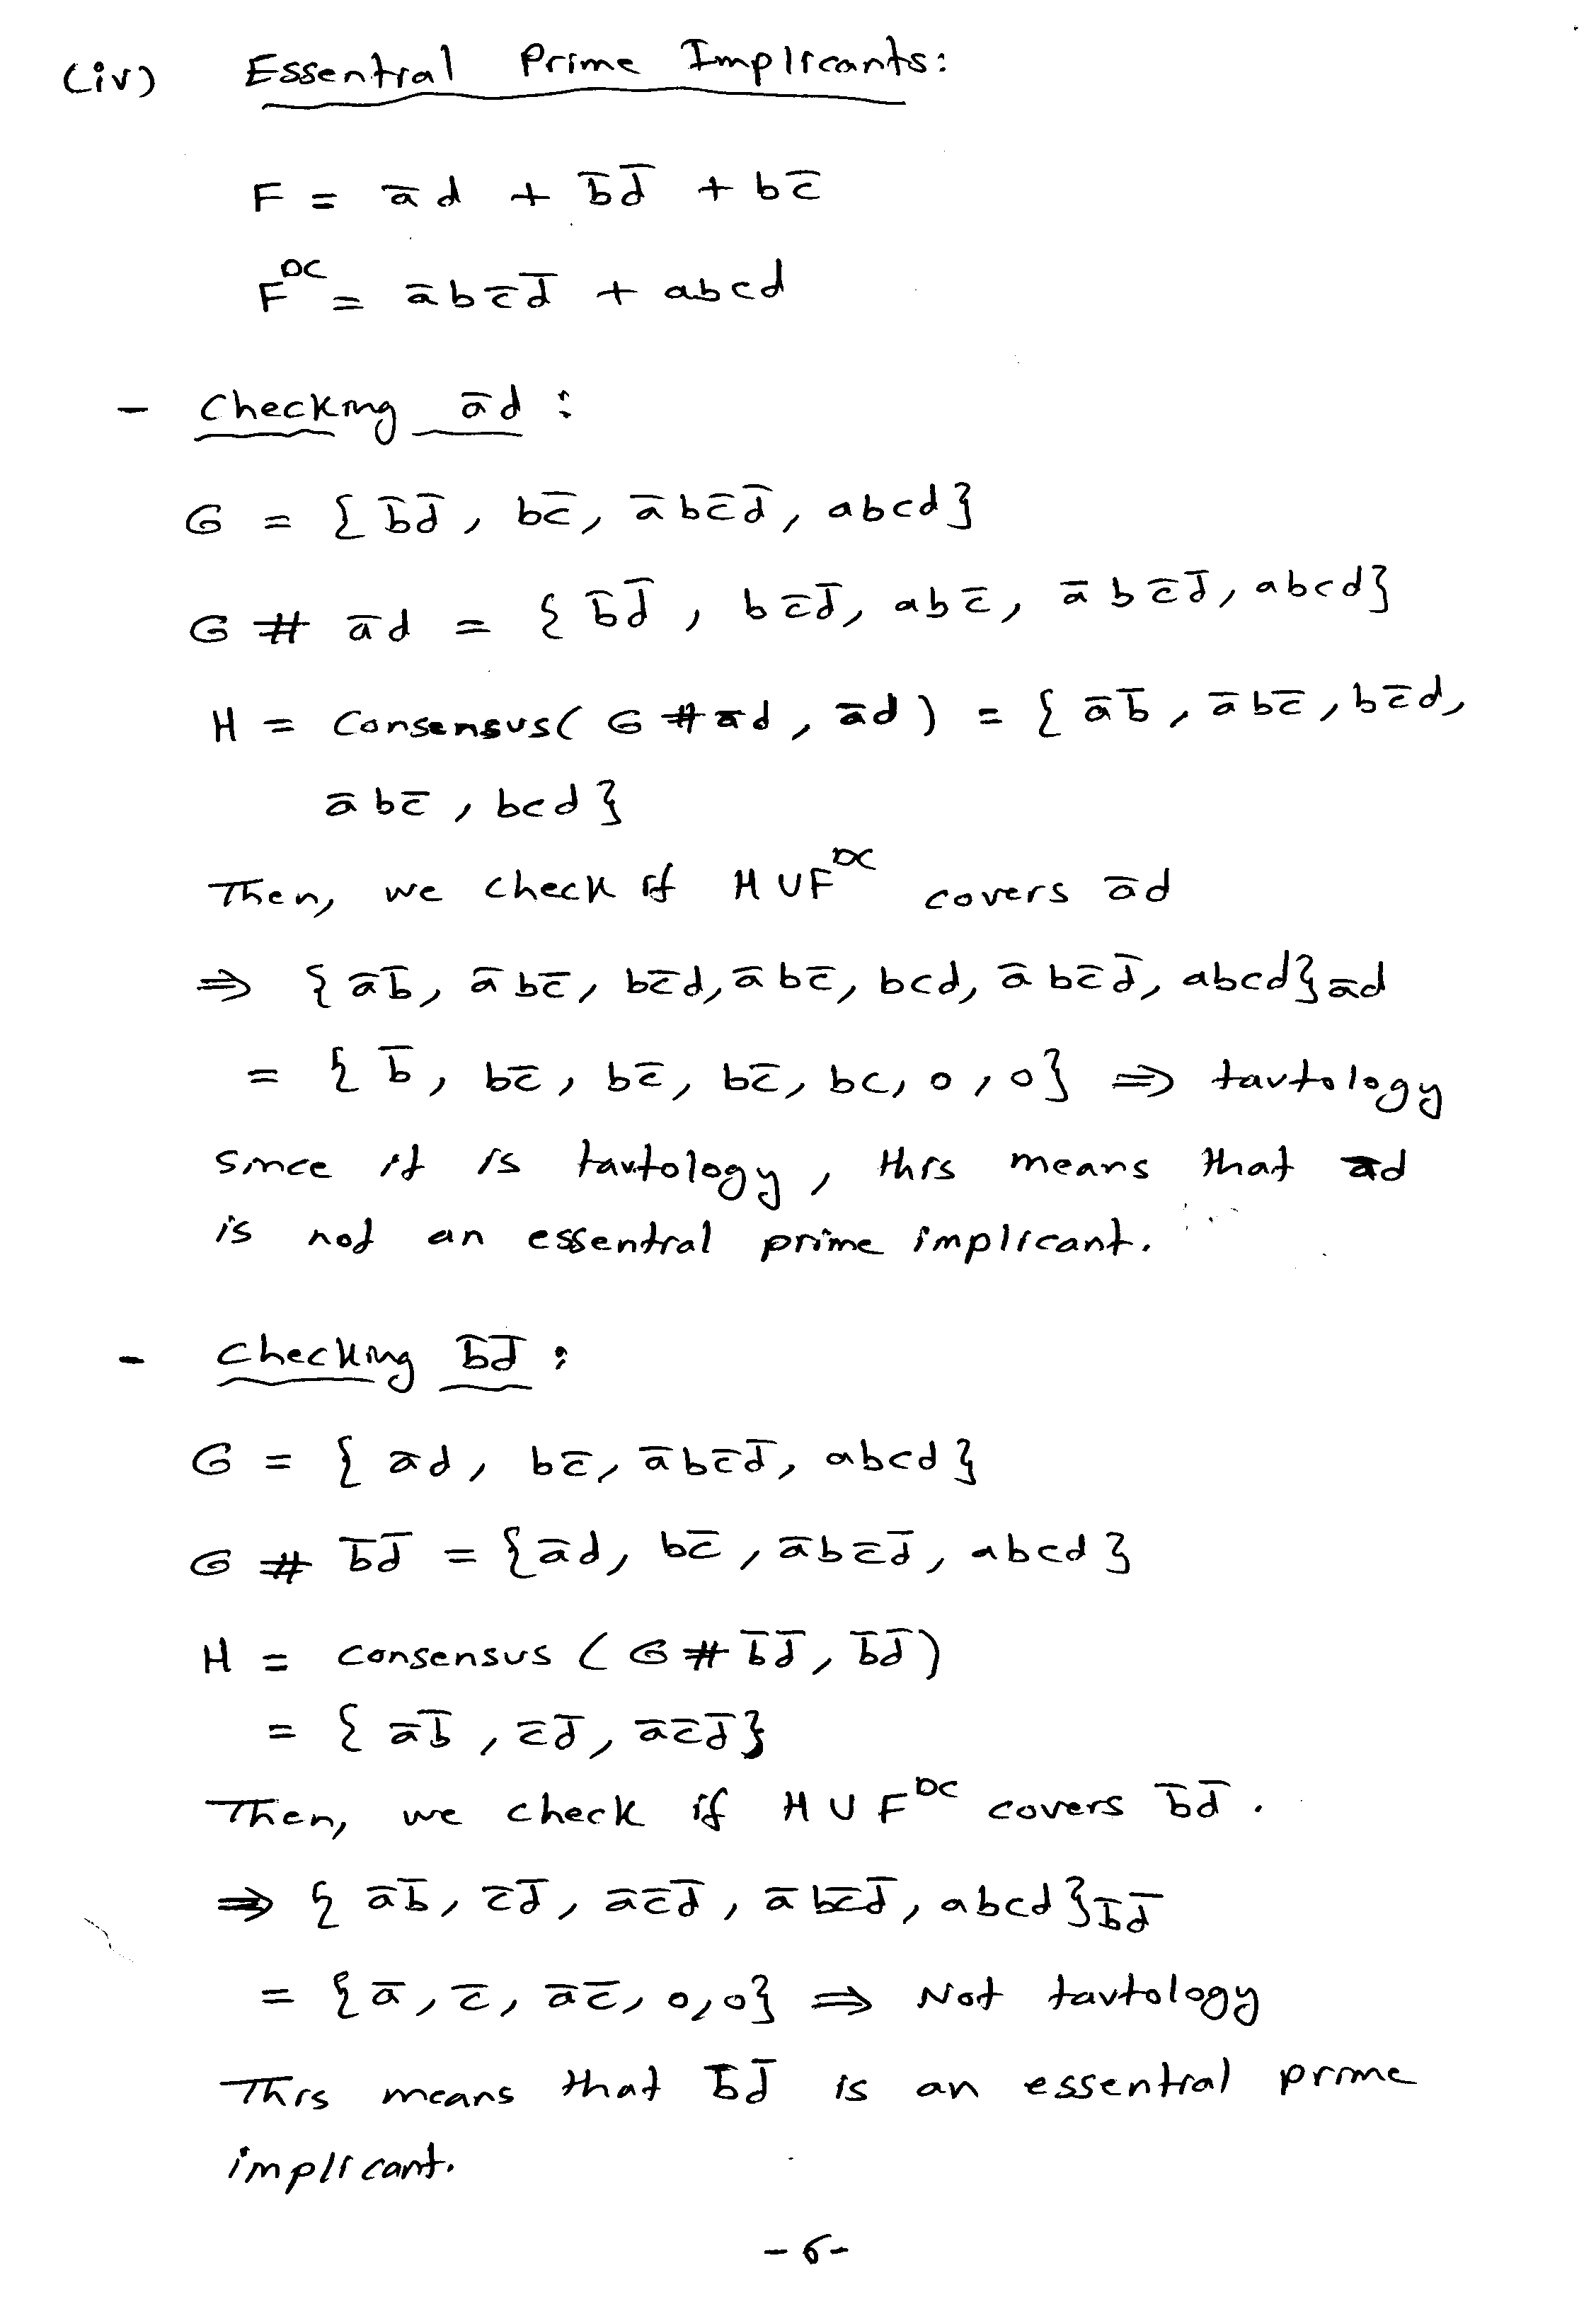 (iv) Essential Prime Implicants:
F = a̅d + b̅d̅ + bc̅
F^DC = a̅bc̅d̅ + abcd
- Checking a̅d :
G = { b̅d̅, bc̅, a̅bc̅d̅, abcd}
G # a̅d = { b̅d̅, bc̅d̅, abc̅, a̅bc̅d̅, abcd}
H = Consensus( G # a̅d, a̅d ) = { a̅b̅, a̅bc̅, bc̅d,
a̅bc̅, bcd }
Then, we check if H ∪ F^DC covers a̅d
⇒ { a̅b̅, a̅bc̅, bc̅d, a̅bc̅, bcd, a̅bc̅d̅, abcd}a̅d
= { b̅, bc̅, bc̅, bc̅, bc, 0, 0} ⇒ tautology
Since it is tautology, this means that a̅d
is not an essential prime implicant.
- Checking b̅d̅ :
G = { a̅d, bc̅, a̅bc̅d̅, abcd }
G # b̅d̅ = { a̅d, bc̅, a̅bc̅d̅, abcd }
H = consensus ( G # b̅d̅, b̅d̅ )
= { a̅b̅, c̅d̅, a̅c̅d̅}
Then, we check if H ∪ F^DC covers b̅d̅.
⇒ { a̅b̅, c̅d̅, a̅c̅d̅, a̅bc̅d̅, abcd }b̅d̅
= { a̅, c̅, a̅c̅, 0, 0} ⇒ Not tautology
This means that b̅d̅ is an essential prime
implicant.
-6-